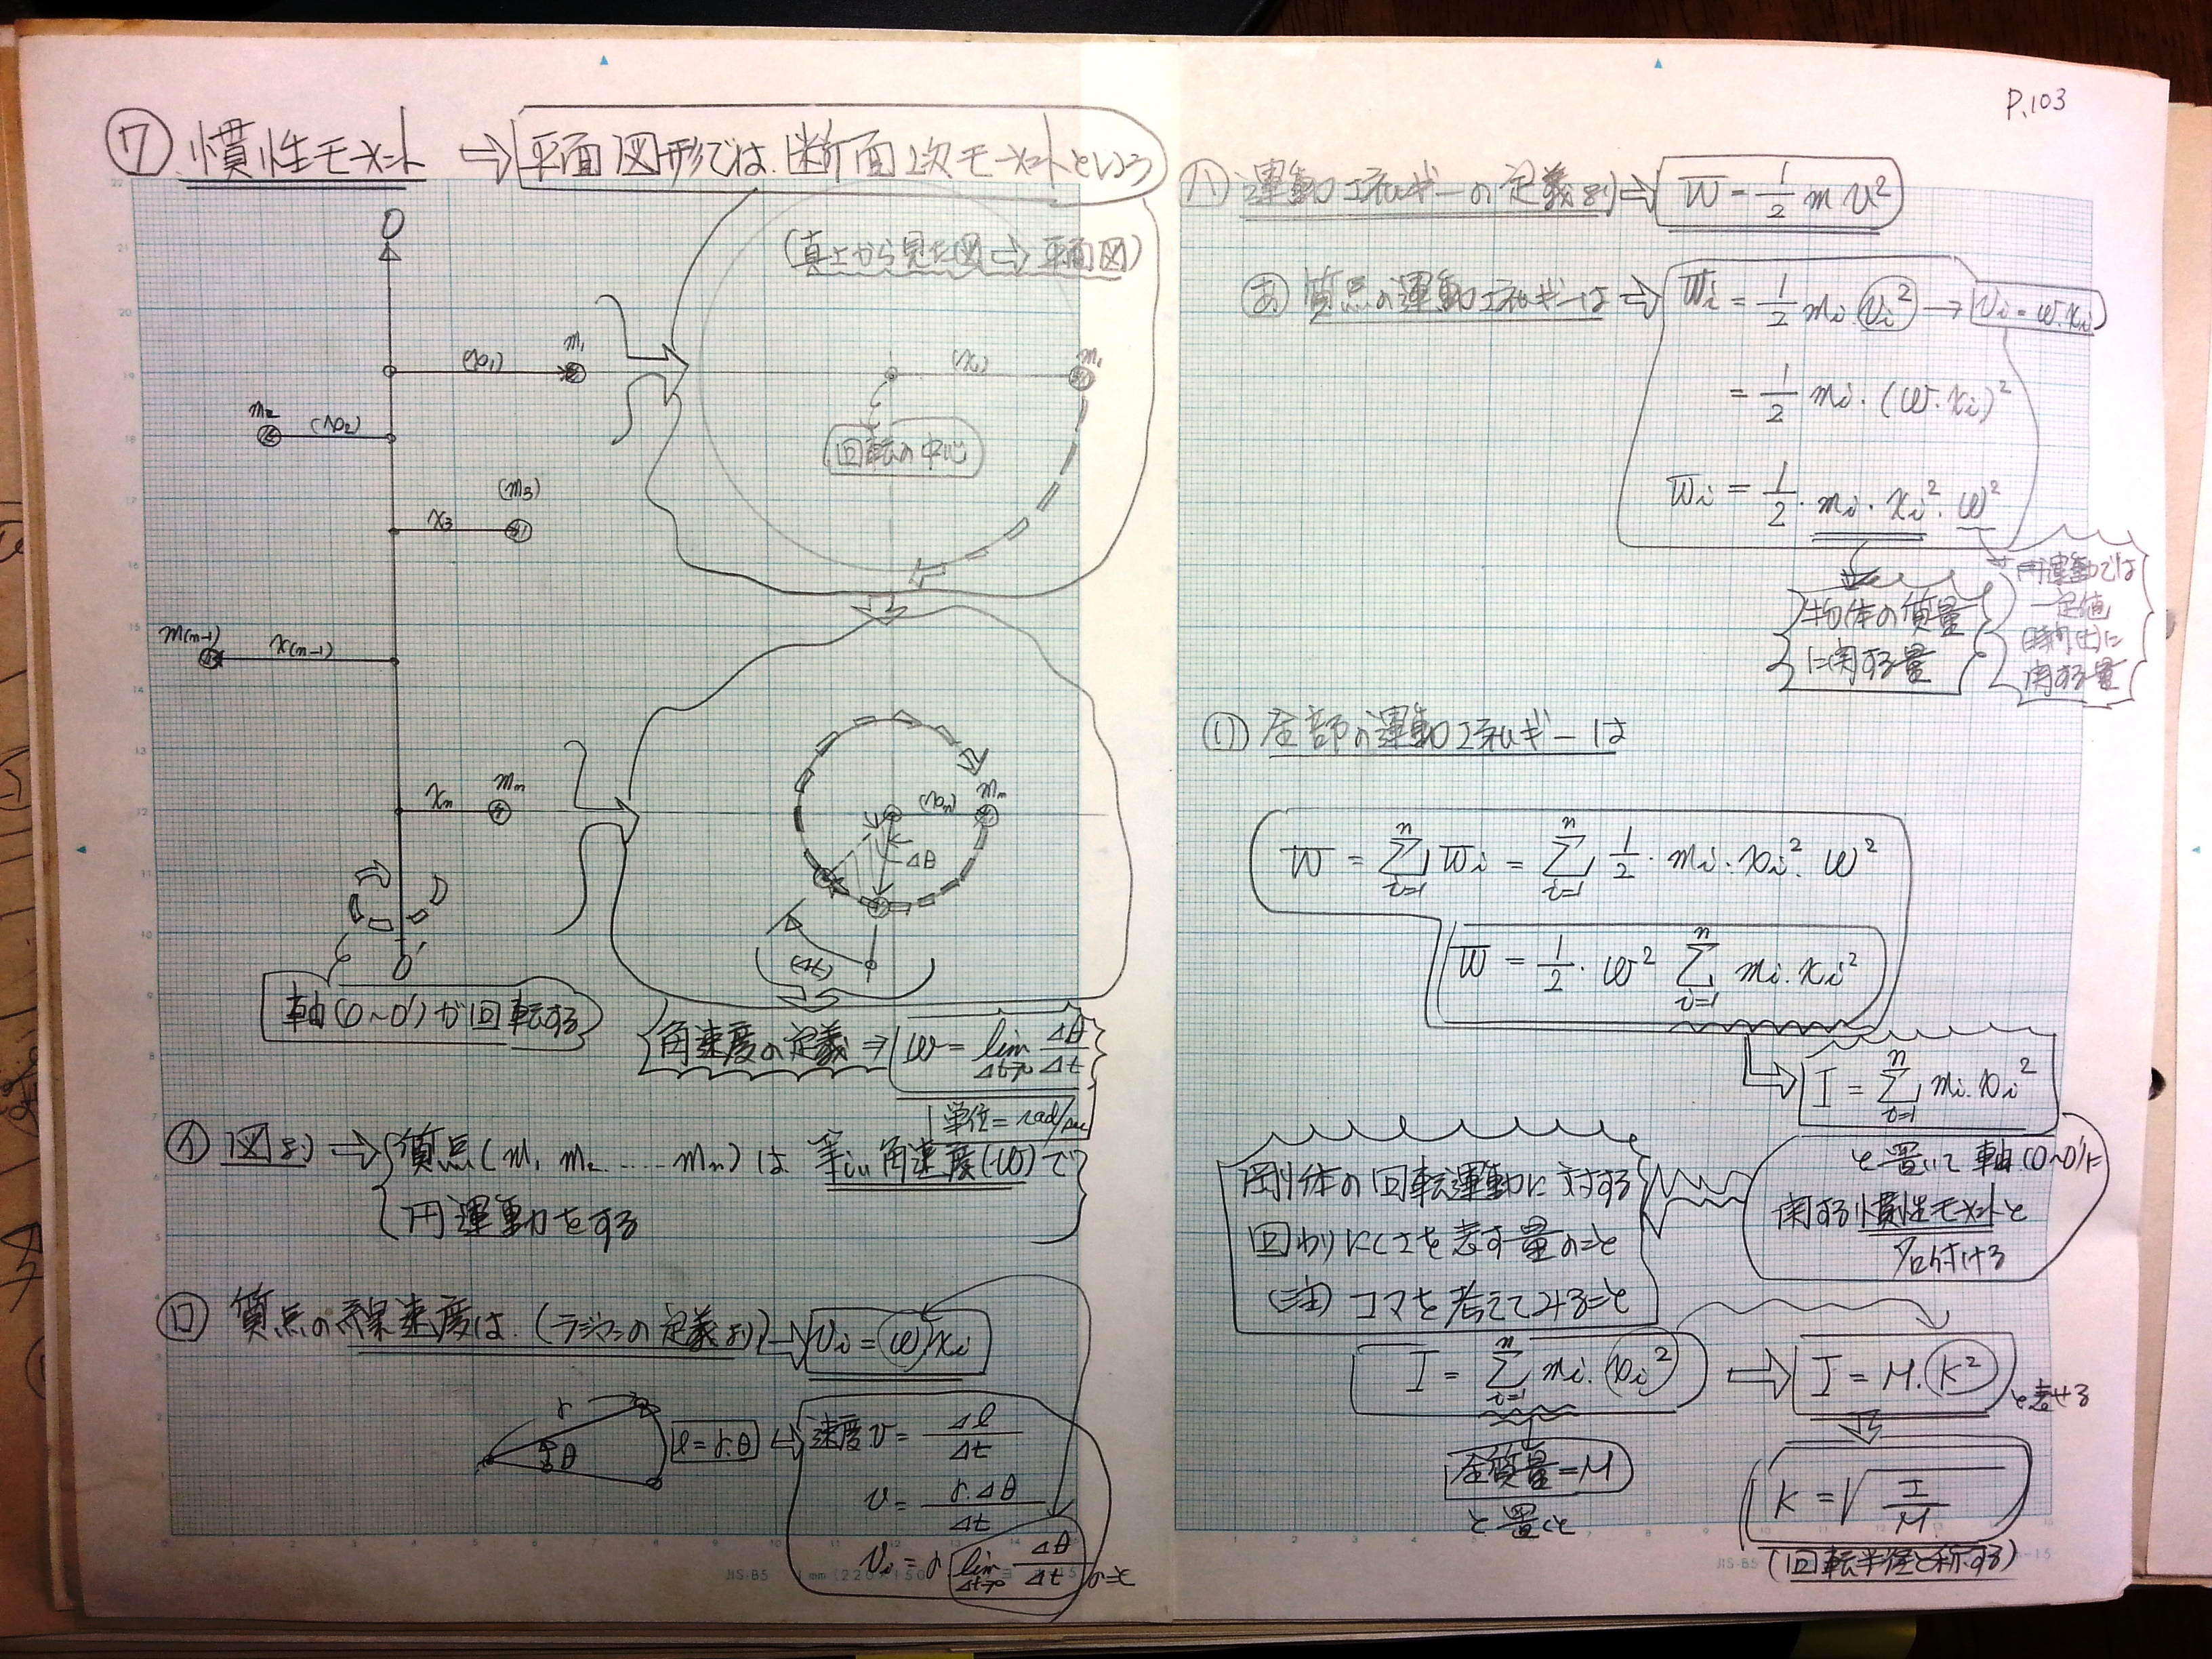 ⑦ 慣性モーメント ⇨ 平面図形では、断面2次モーメントという
O
(真上から見た図⇨平面図)
m₁
(x₁)
m₂
(x₂)
(x₁)
m₁
回転の中心
(m₃)
x₃
m(n-1)
x(n-1)
xn
mn
(xn)
mn
Δθ
(Δt)
O′
軸(O~O′)が回転する
角速度の定義 ⇒ ω = lim Δt→0 Δθ/Δt
単位=rad/sec
㋑ 図より → 質点(m₁ m₂ ‥‥ mn)は等しい角速度(ω)で
円運動をする
㋺ 質点の線速度は、(ラジアンの定義より) → vi = ω xi
r
θ
l = r.θ → 速度 v = Δl/Δt
v = r.Δθ/Δt
vi = r lim Δt→0 Δθ/Δt のこと
P.103
㋩ 運動エネルギーの定義より ⇨ W = 1/2 m v²
㋐ 質点の運動エネルギーは ⇨ Wi = 1/2 mi vi² → vi = ω.xi
= 1/2 mi・(ω.xi)²
Wi = 1/2・mi・xi²・ω²
物体の質量
に関する量
円運動では
一定値
関する量
㋑ 全部の運動エネルギーは
W = Σ i=1 n Wi = Σ i=1 n 1/2・mi・xi²・ω²
W = 1/2・ω² Σ i=1 n mi.xi²
I = Σ i=1 n mi.xi²
と置いて軸(O~O′)に
関する慣性モーメントと
名付ける
剛体の回転運動に対する
回わりにくさを表す量のこと
(注) コマを考えてみること
I = Σ i=1 n mi.(xi²) ⇨ I = M.(K²) と表せる
全質量=M
と置くと
K = √I/M
(回転半径と称する)